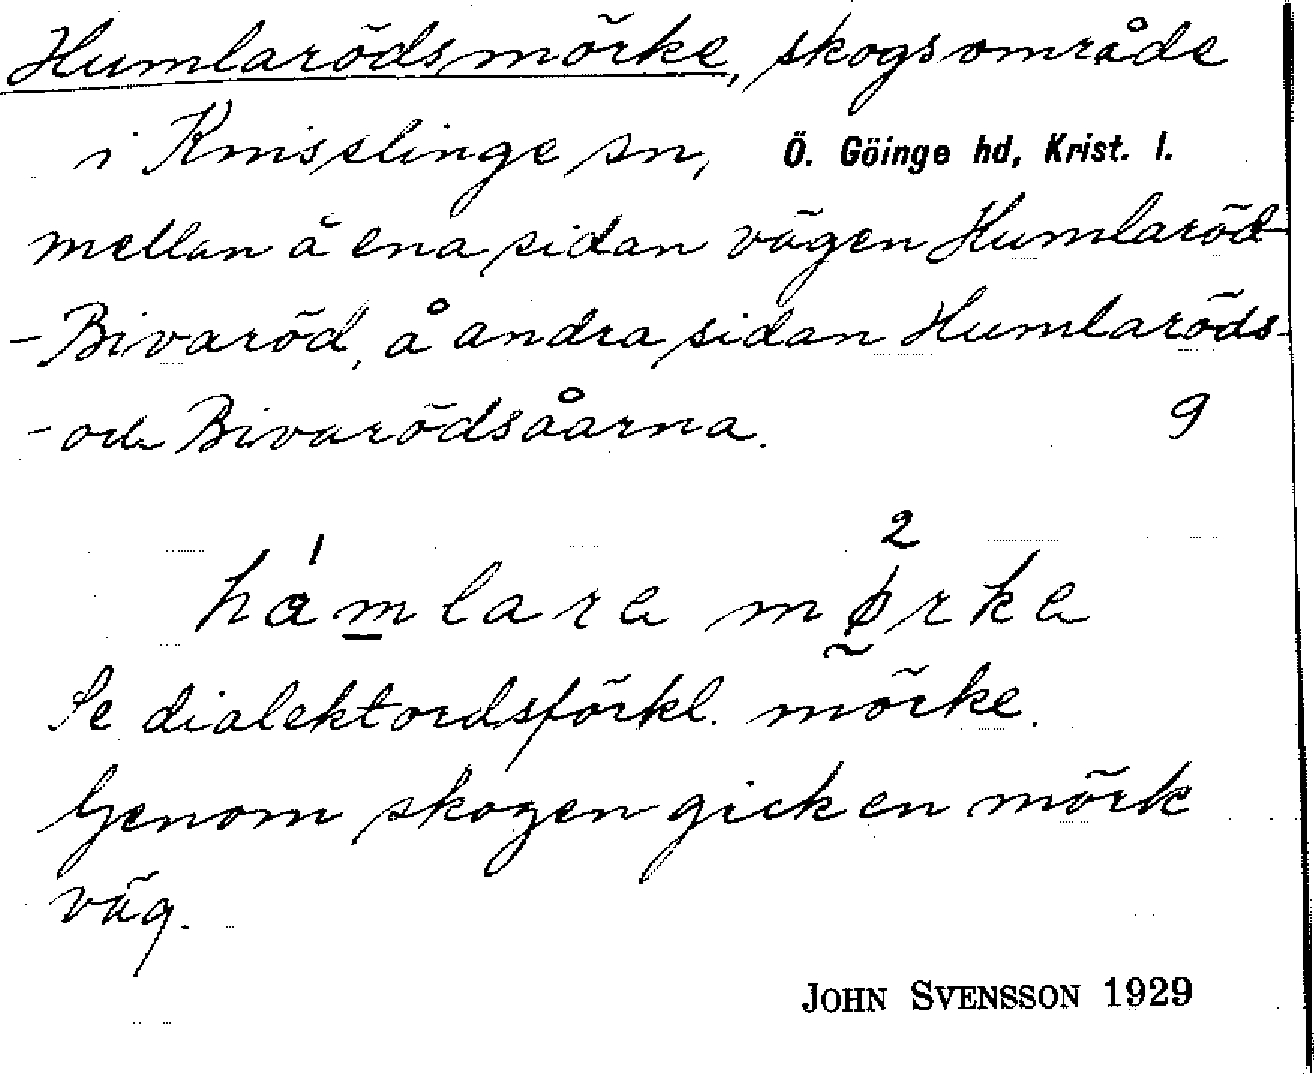 Humlarödsmörke, skogsområde
i Knisslinge sn, Ö. Göinge hd, Krist. l.
mellan å ena sidan vägen Humlaröd-
-Bivaröd, å andra sidan Humlaröds-
-och Bivarödsåarna. 9
1 2
hamlara mørke
Se dialektordsförkl. mörke.
Genom skogen gick en mörk
väg.
JOHN SVENSSON 1929